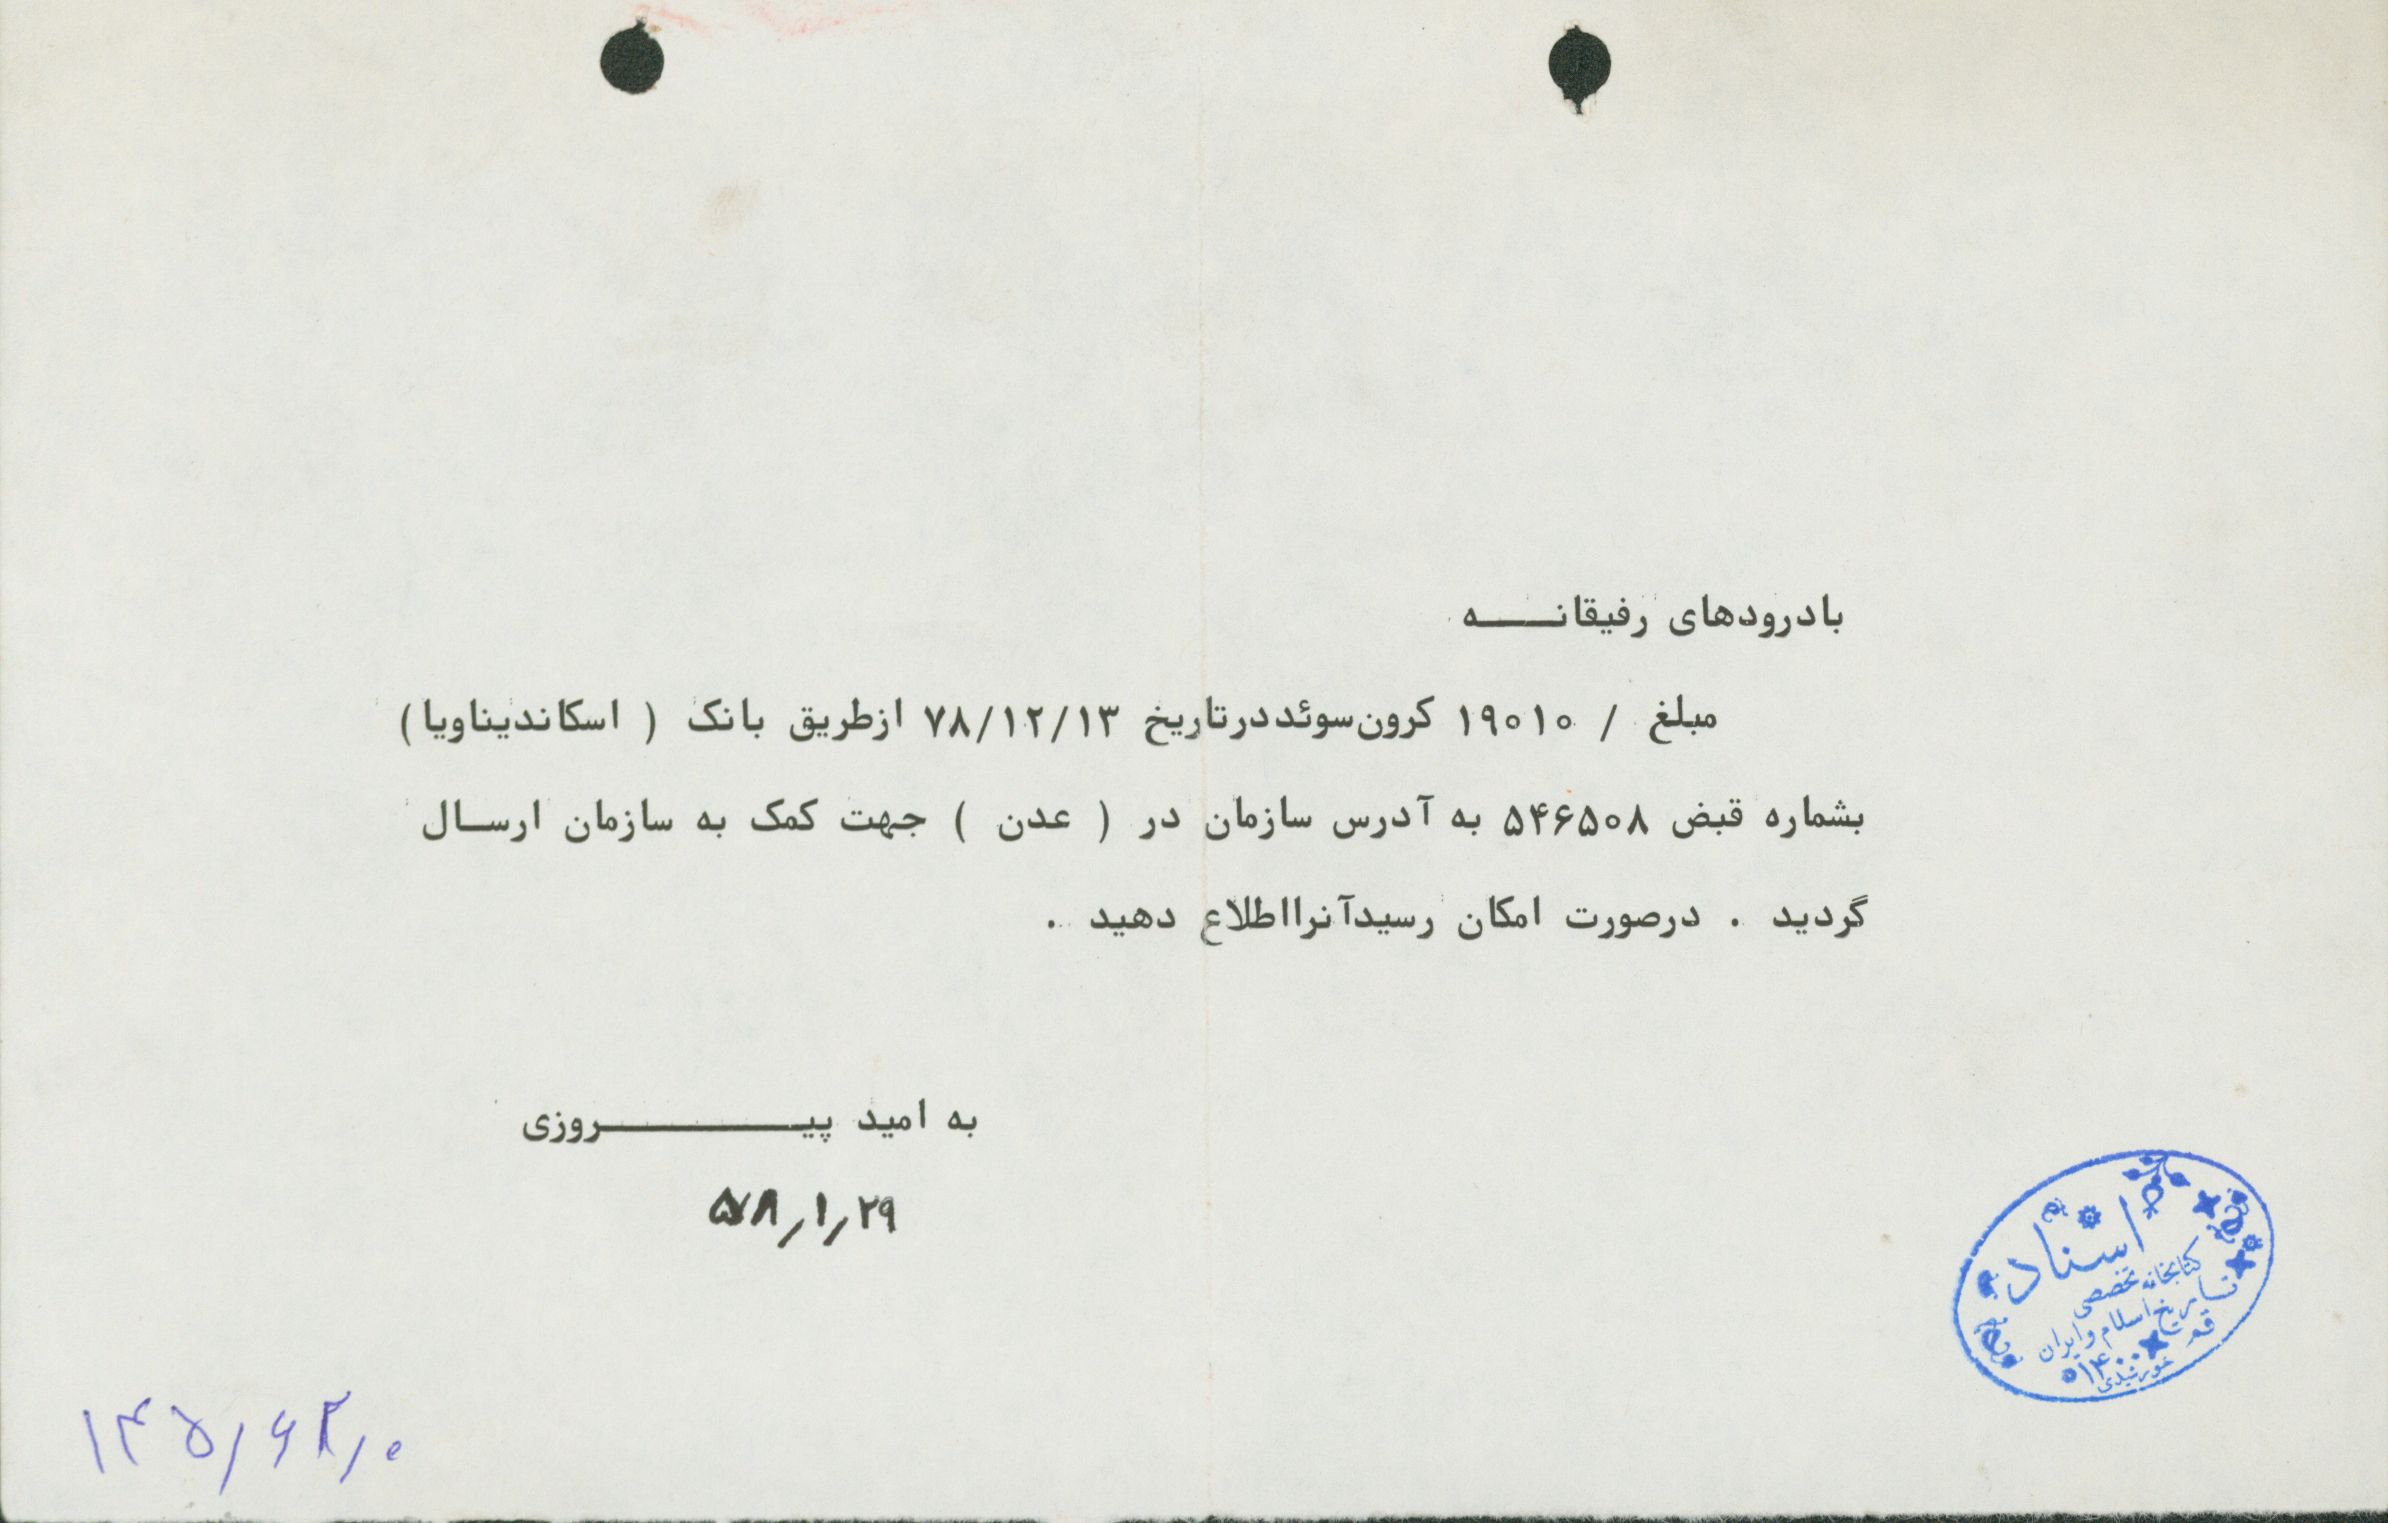 بادرودهای رفیقانــــه
مبلغ / ۱۹۰۱۰ کرون سوئد در تاریخ ۷۸/۱۲/۱۳ ازطریق بانک ( اسکاندیناویا)
بشماره قبض ۵۴۶۵۰۸ به آدرس سازمان در ( عدن ) جهت کمک به سازمان ارســال
گردید . درصورت امکان رسیدآنرااطلاع دهید .
به امید پیــــــــــروزی
۵۸/۱/۲۹
اسناد
کتابخانه تخصصی
تاریخ اسلام و ایران
قم
۱۴۰۰
خورشیدی